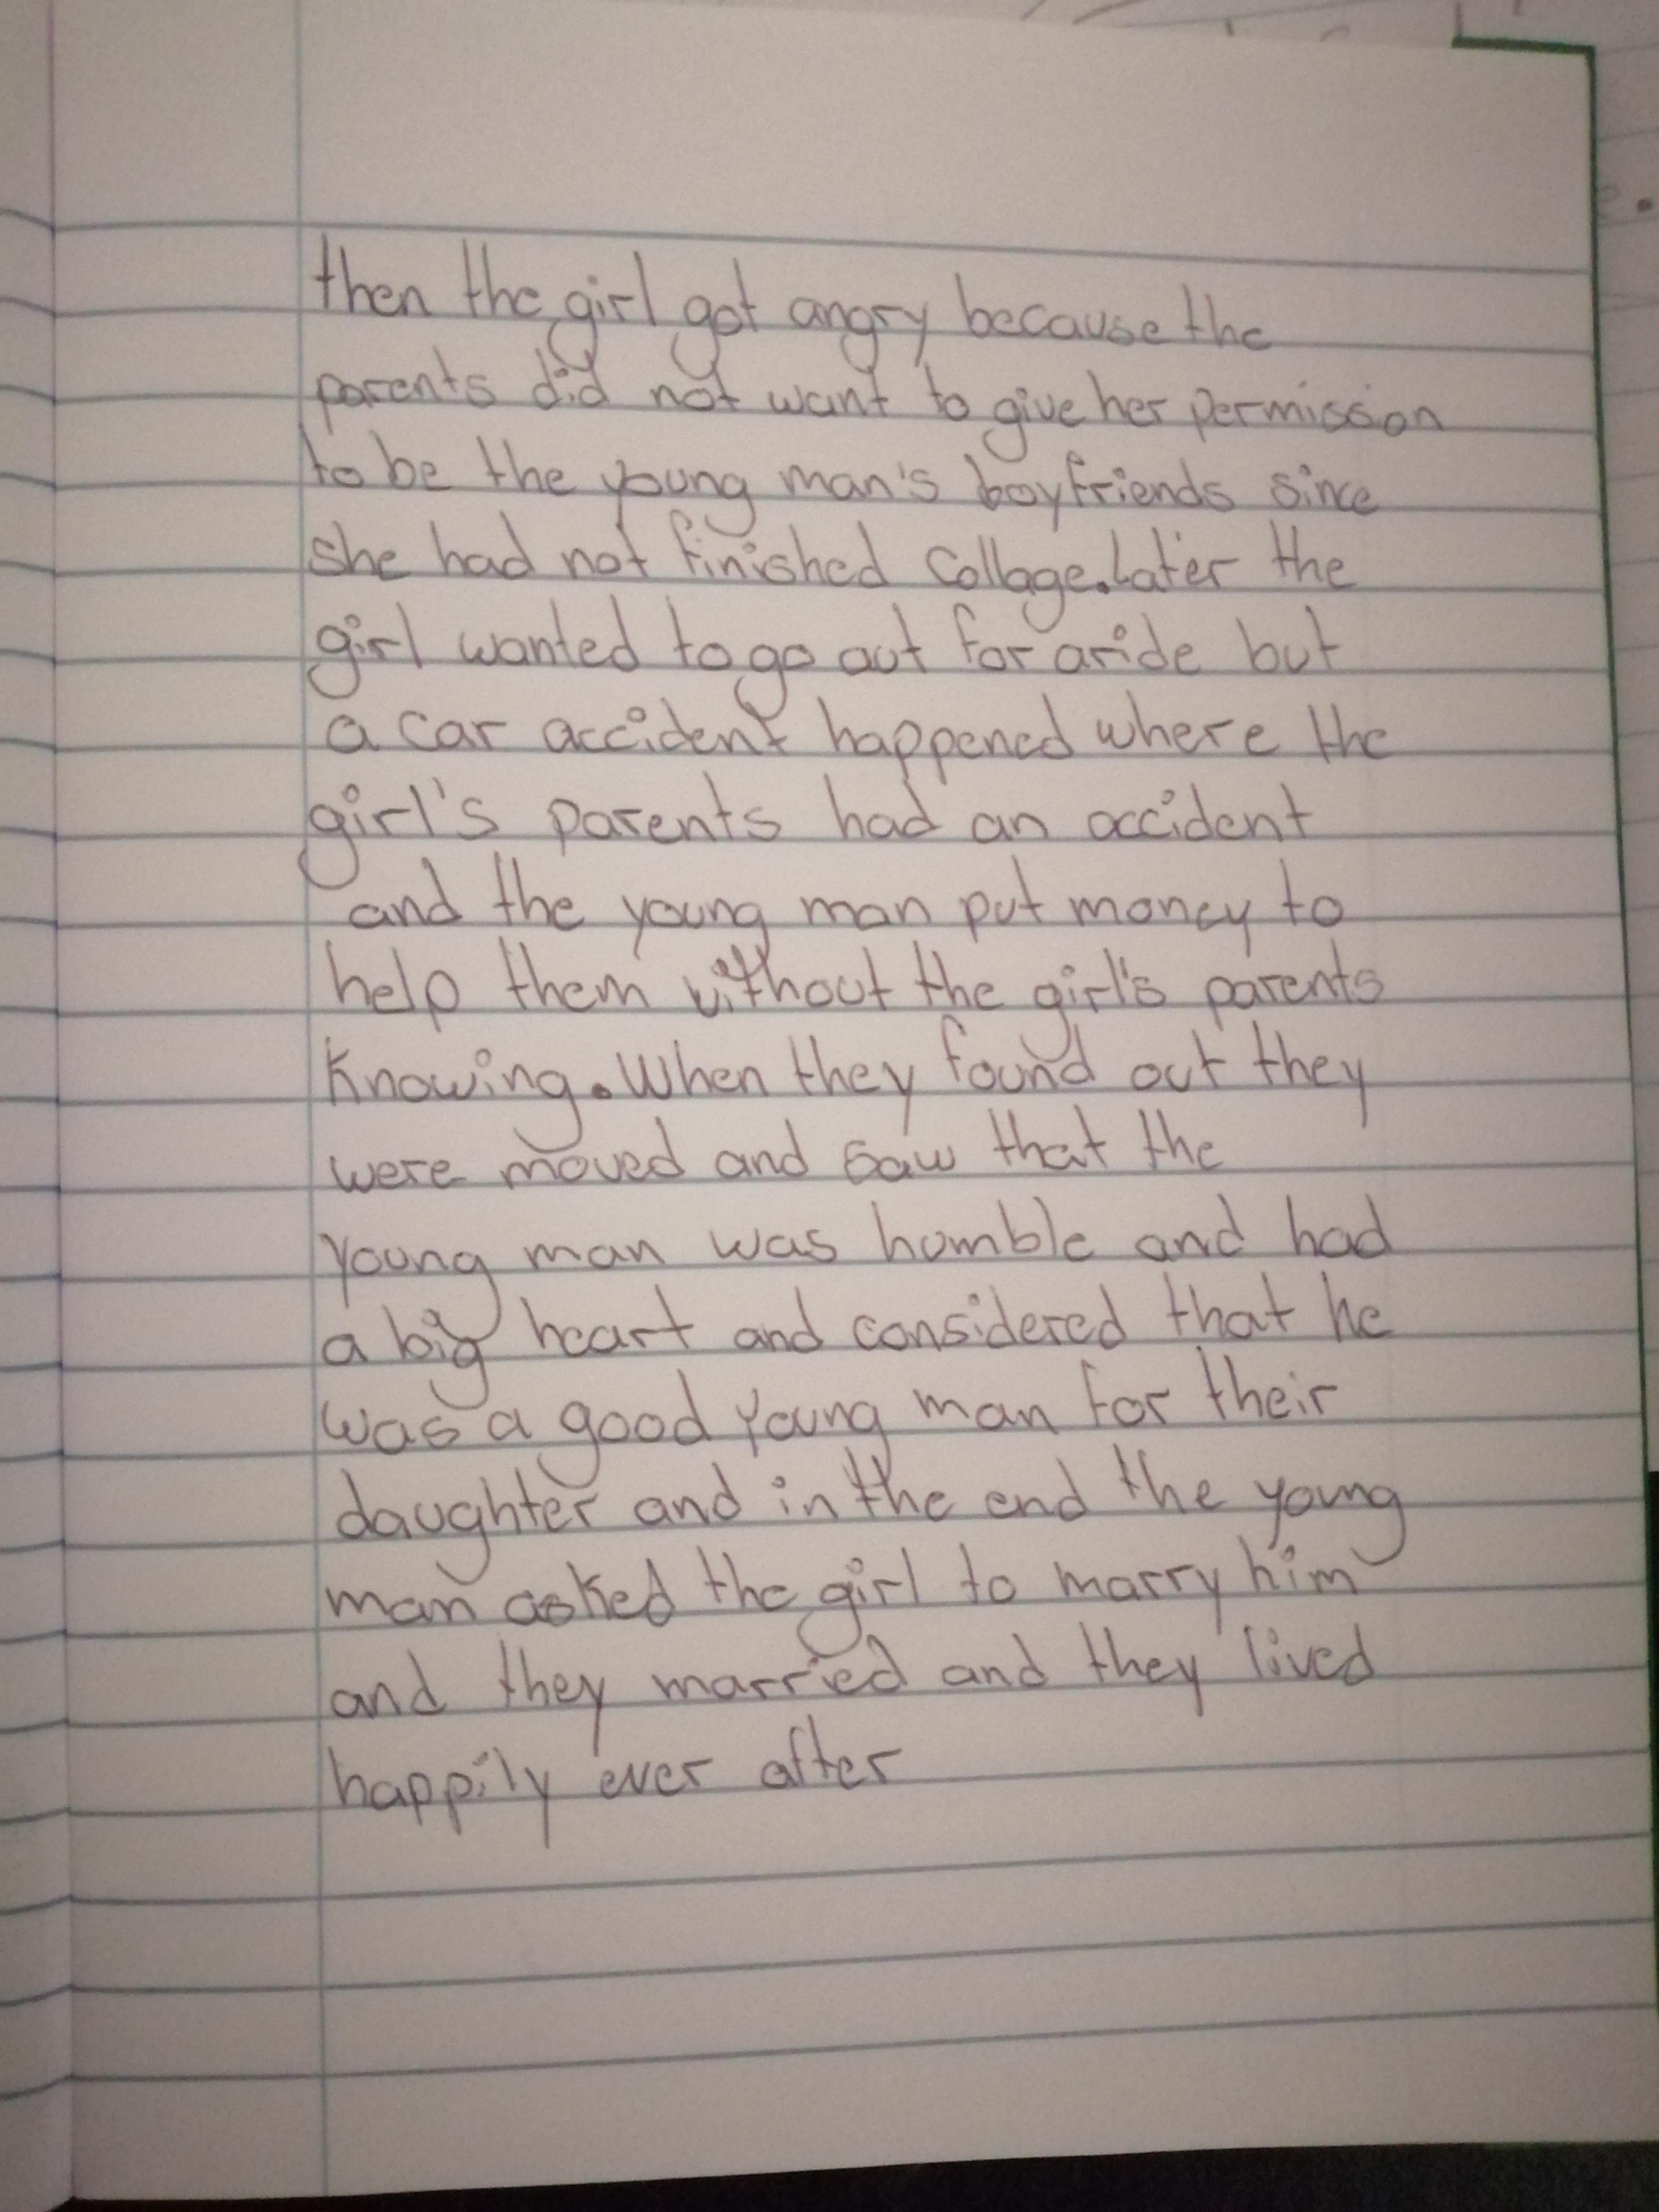 then the girl got angry because the
parents did not want to give her permission
to be the young man's boyfriends since
she had not finished collage. Later the
girl wanted to go out for aride but
a car accident happened where the
girl's parents had an accident
and the young man put money to
help them without the girl's parents
Knowing. When they found out they
were moved and saw that the
young man was humble and had
a big heart and considered that he
was a good young man for their
daughter and in the end the young
man asked the girl to marry him
and they married and they lived
happily ever after